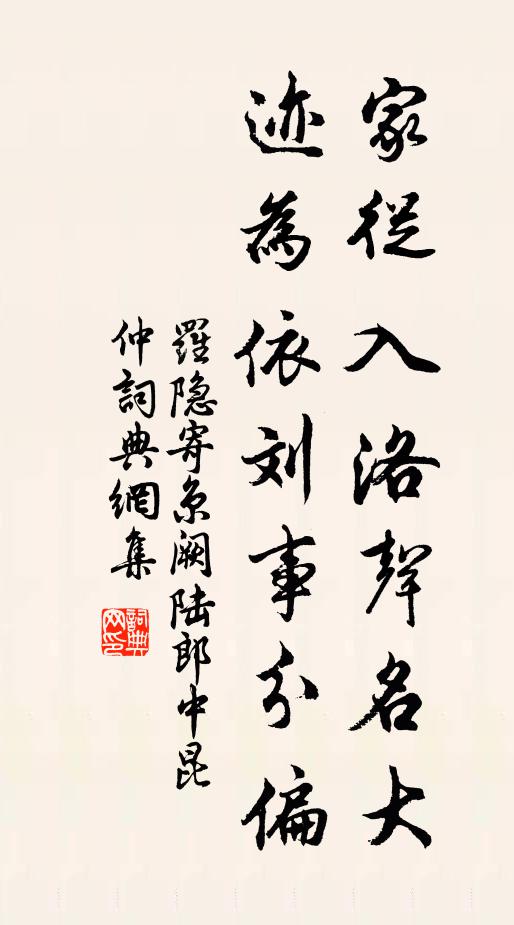 家從入洛聲名大
迹為依刘事分偏
羅隐寄京阙陆郎中昆
仲詞典網集
詞典
网印